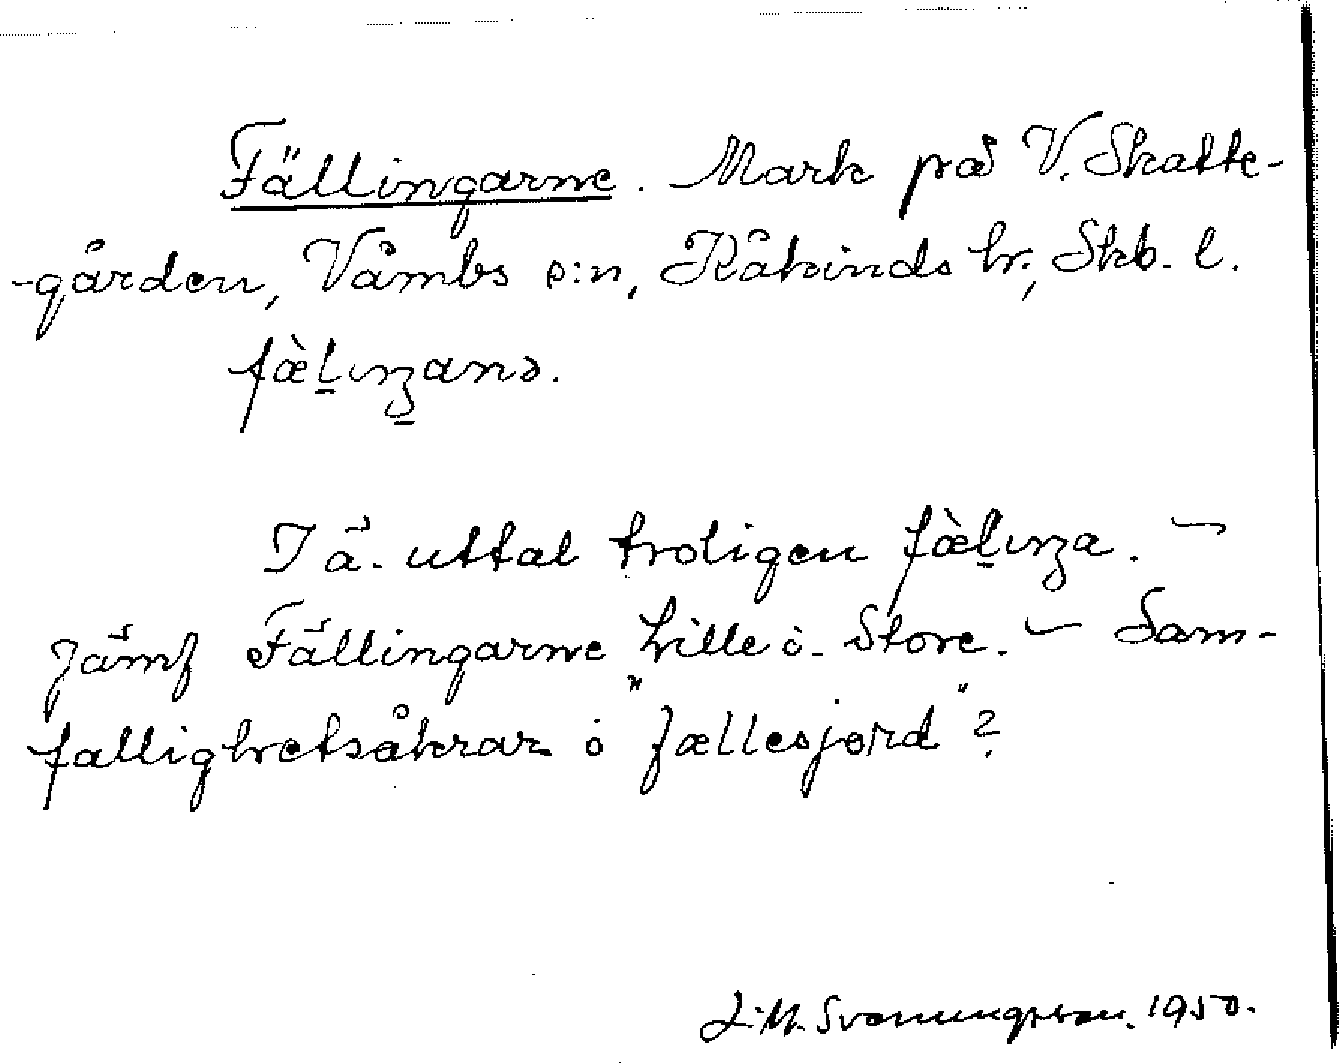 Fällingarne. Mark på V. Skatte-
-gården, Våmbs s:n, Kåkinds hr., Skb. l.
fæ̀l̠ɩŋanə.
I ä. uttal troligen fæ̀l̠ɩŋa. —
Jämf Fällingarne Lille o. Store. — Sam-
fällighetsåkrar ȯ "fællesjord"?
J. M. Svenungsson. 1950.